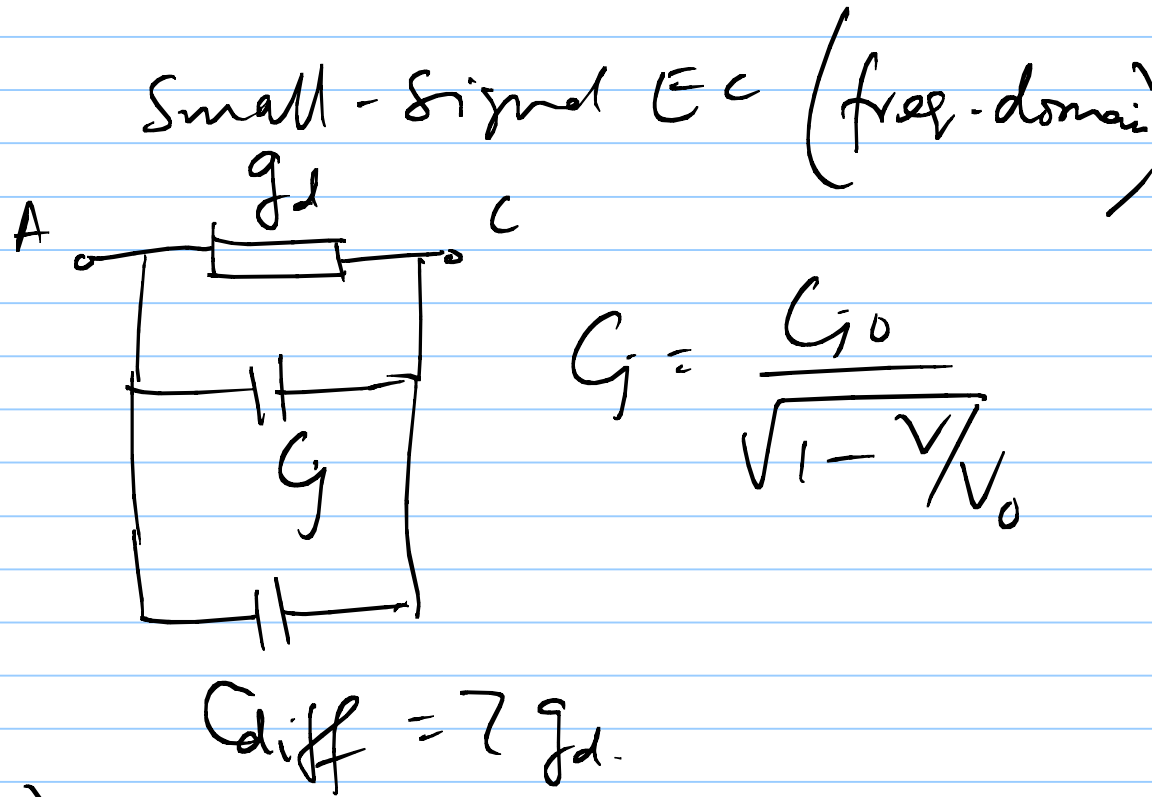 Small-signal EC (freq-domain)
g_d
A C
C_j = C_j0 / √(1 - V/V_0)
C_j
C_diff = τ g_d.